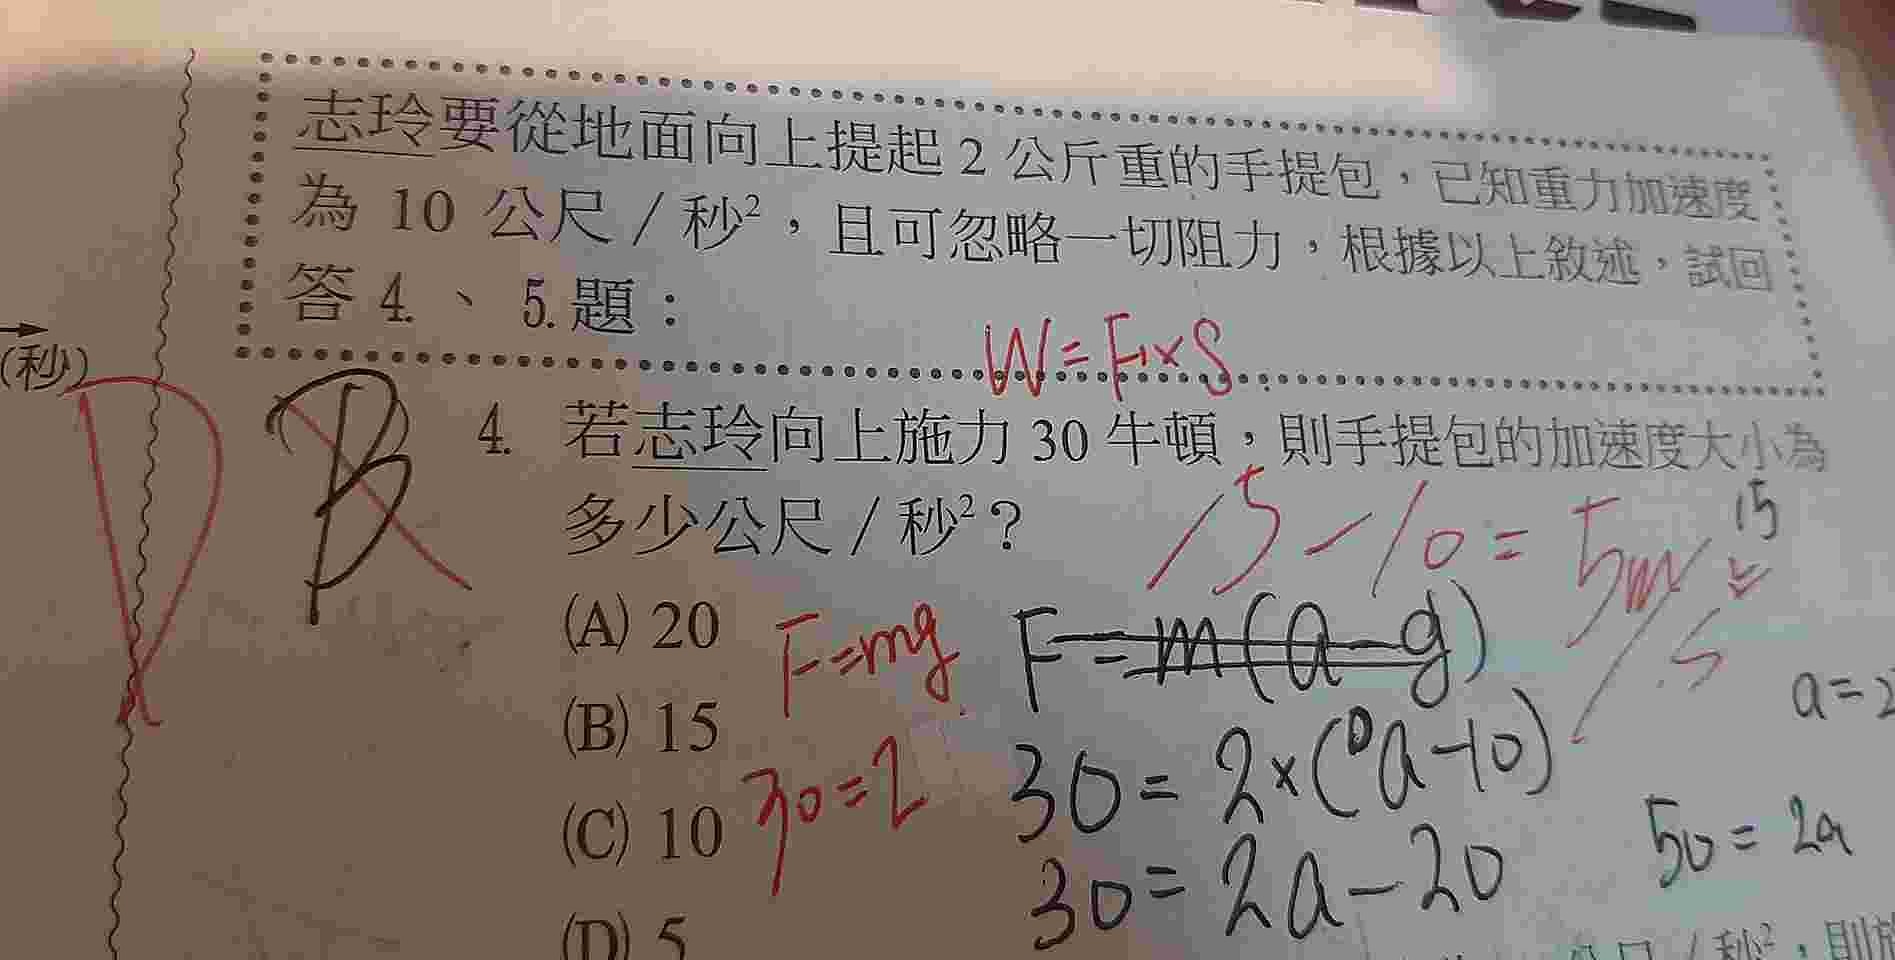 志玲要從地面向上提起 2 公斤重的手提包，已知重力加速度
為 10 公尺／秒²，且可忽略一切阻力，根據以上敘述，試回
答 4.、5.題：
(秒)
W=F×S
D
B
4. 若志玲向上施力 30 牛頓，則手提包的加速度大小為
多少公尺／秒²？
15-10=5m/s
15
(A) 20
F=mg
F=m(a-g)
a=2
(B) 15
30=2×(a-10)
(C) 10
30=2
50=2a
30=2a-20
(D) 5
公尺／秒²，則